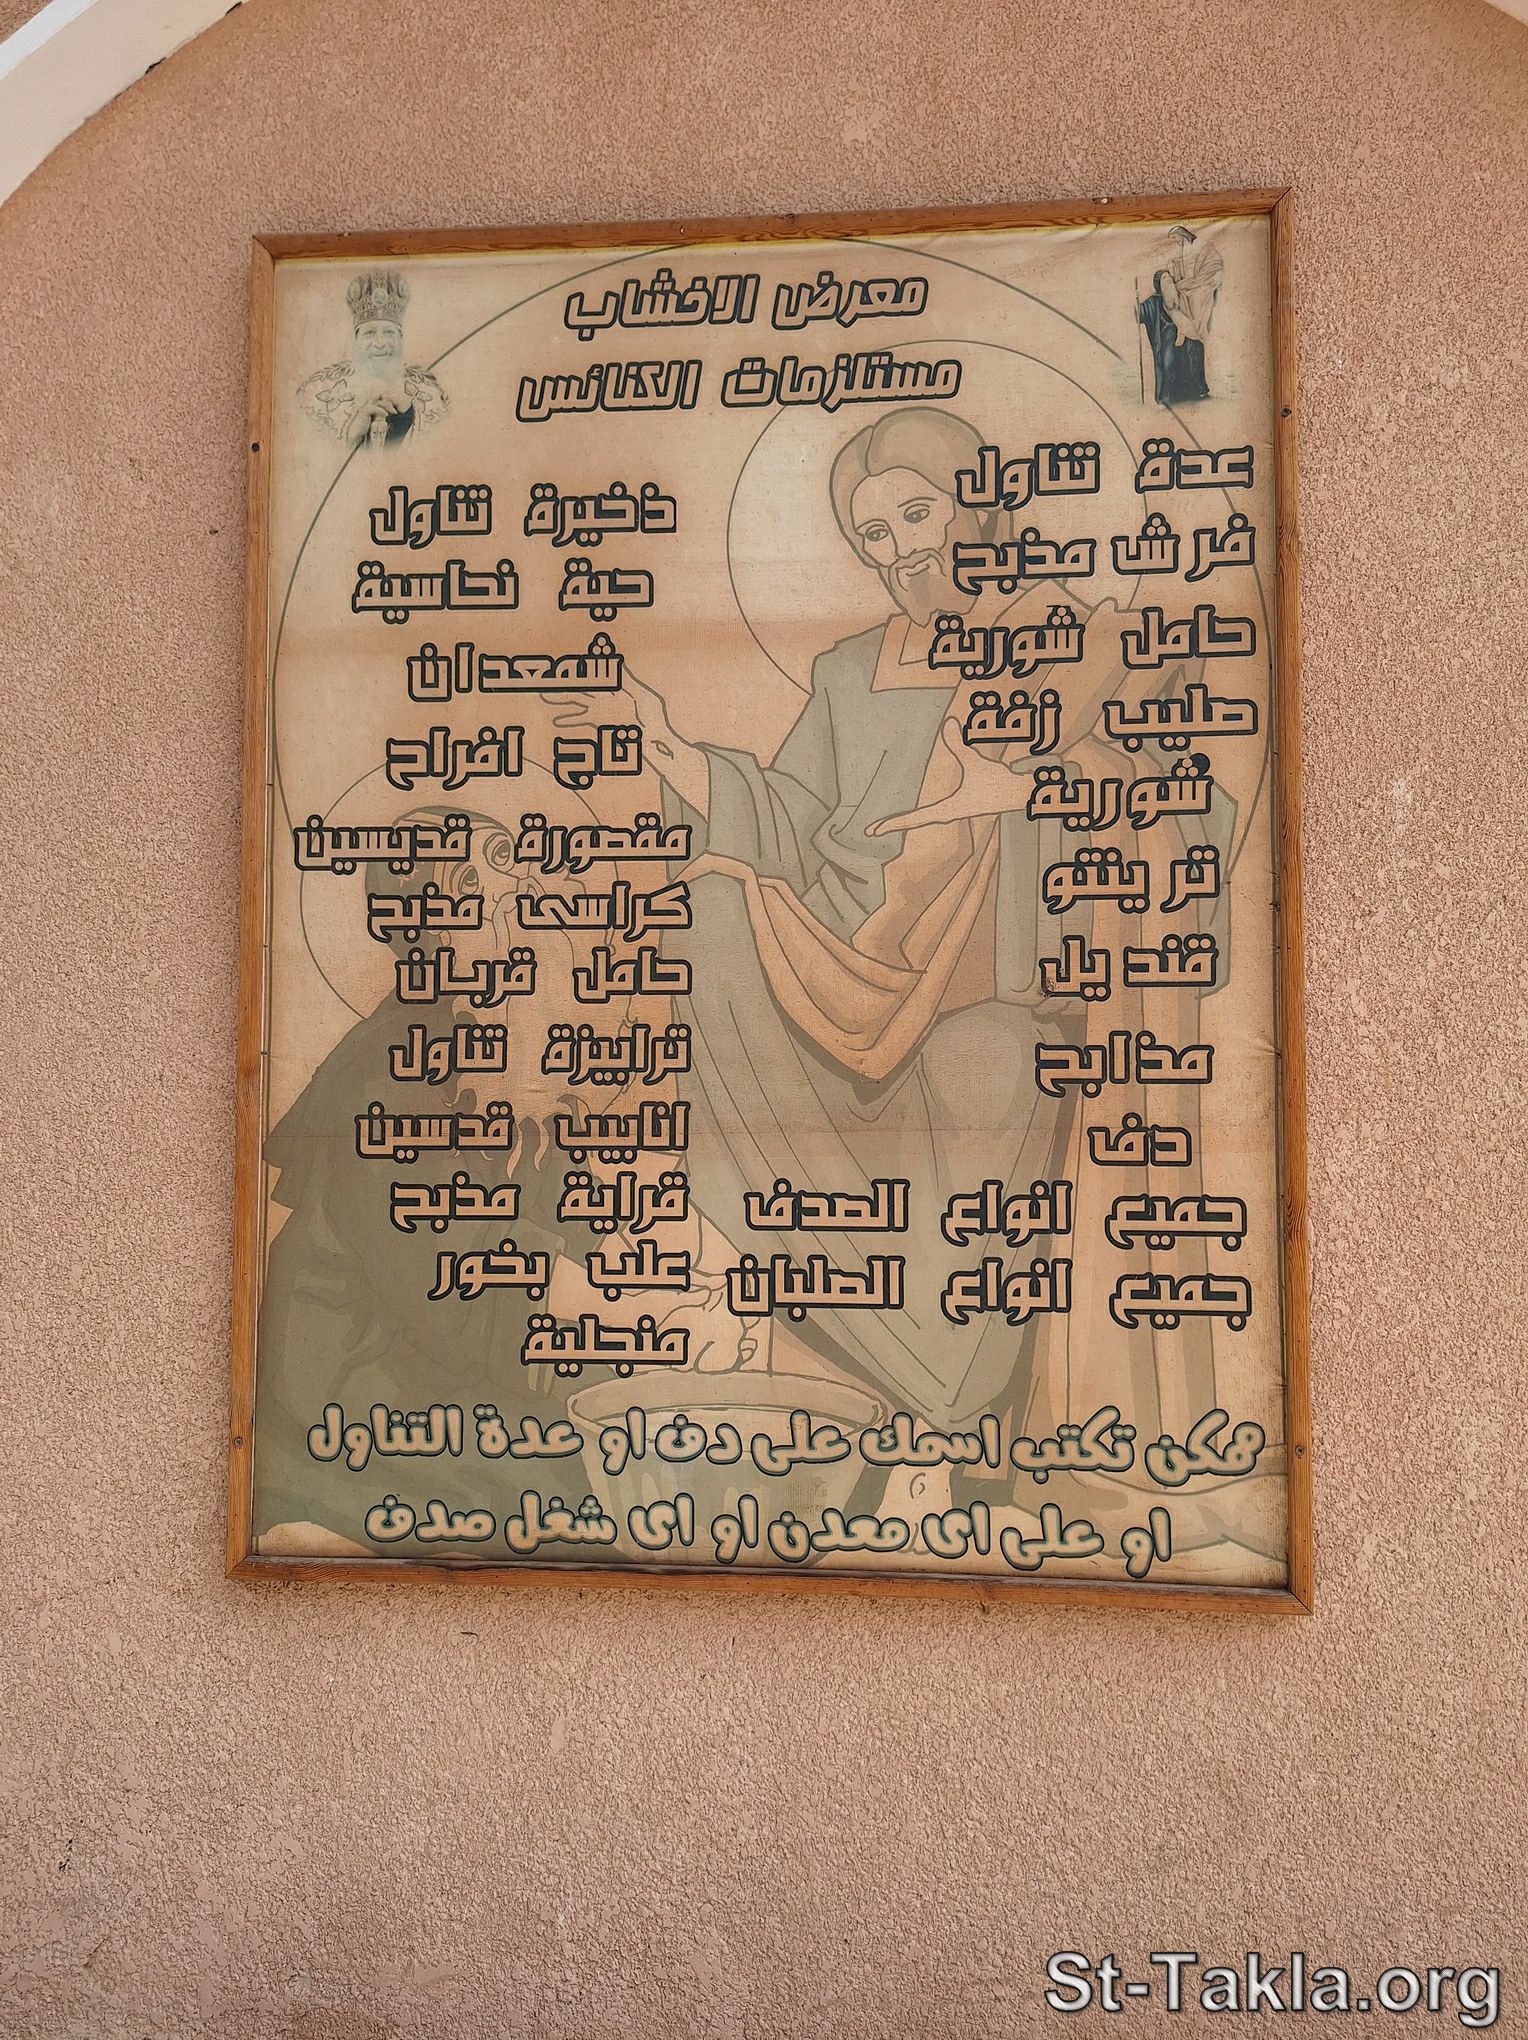 معرض الاخشاب
مستلزمات الكنائس
عدة تناول
فرش مذبح
حامل شورية
صليب زفة
شورية
ترينتو
قنديل
مذابح
دف
جميع انواع الصدف
جميع انواع الصلبان
ذخيرة تناول
حية نحاسية
شمعدان
تاج افراح
مقصورة قديسين
كراسى مذبح
حامل قربان
ترابيزة تناول
انابيب قدسين
قراية مذبح
علب بخور
منجلية
همكن تكتب اسمك على دف او عدة التناول
او على اى معدن او اى شغل صدف
St-Takla.org